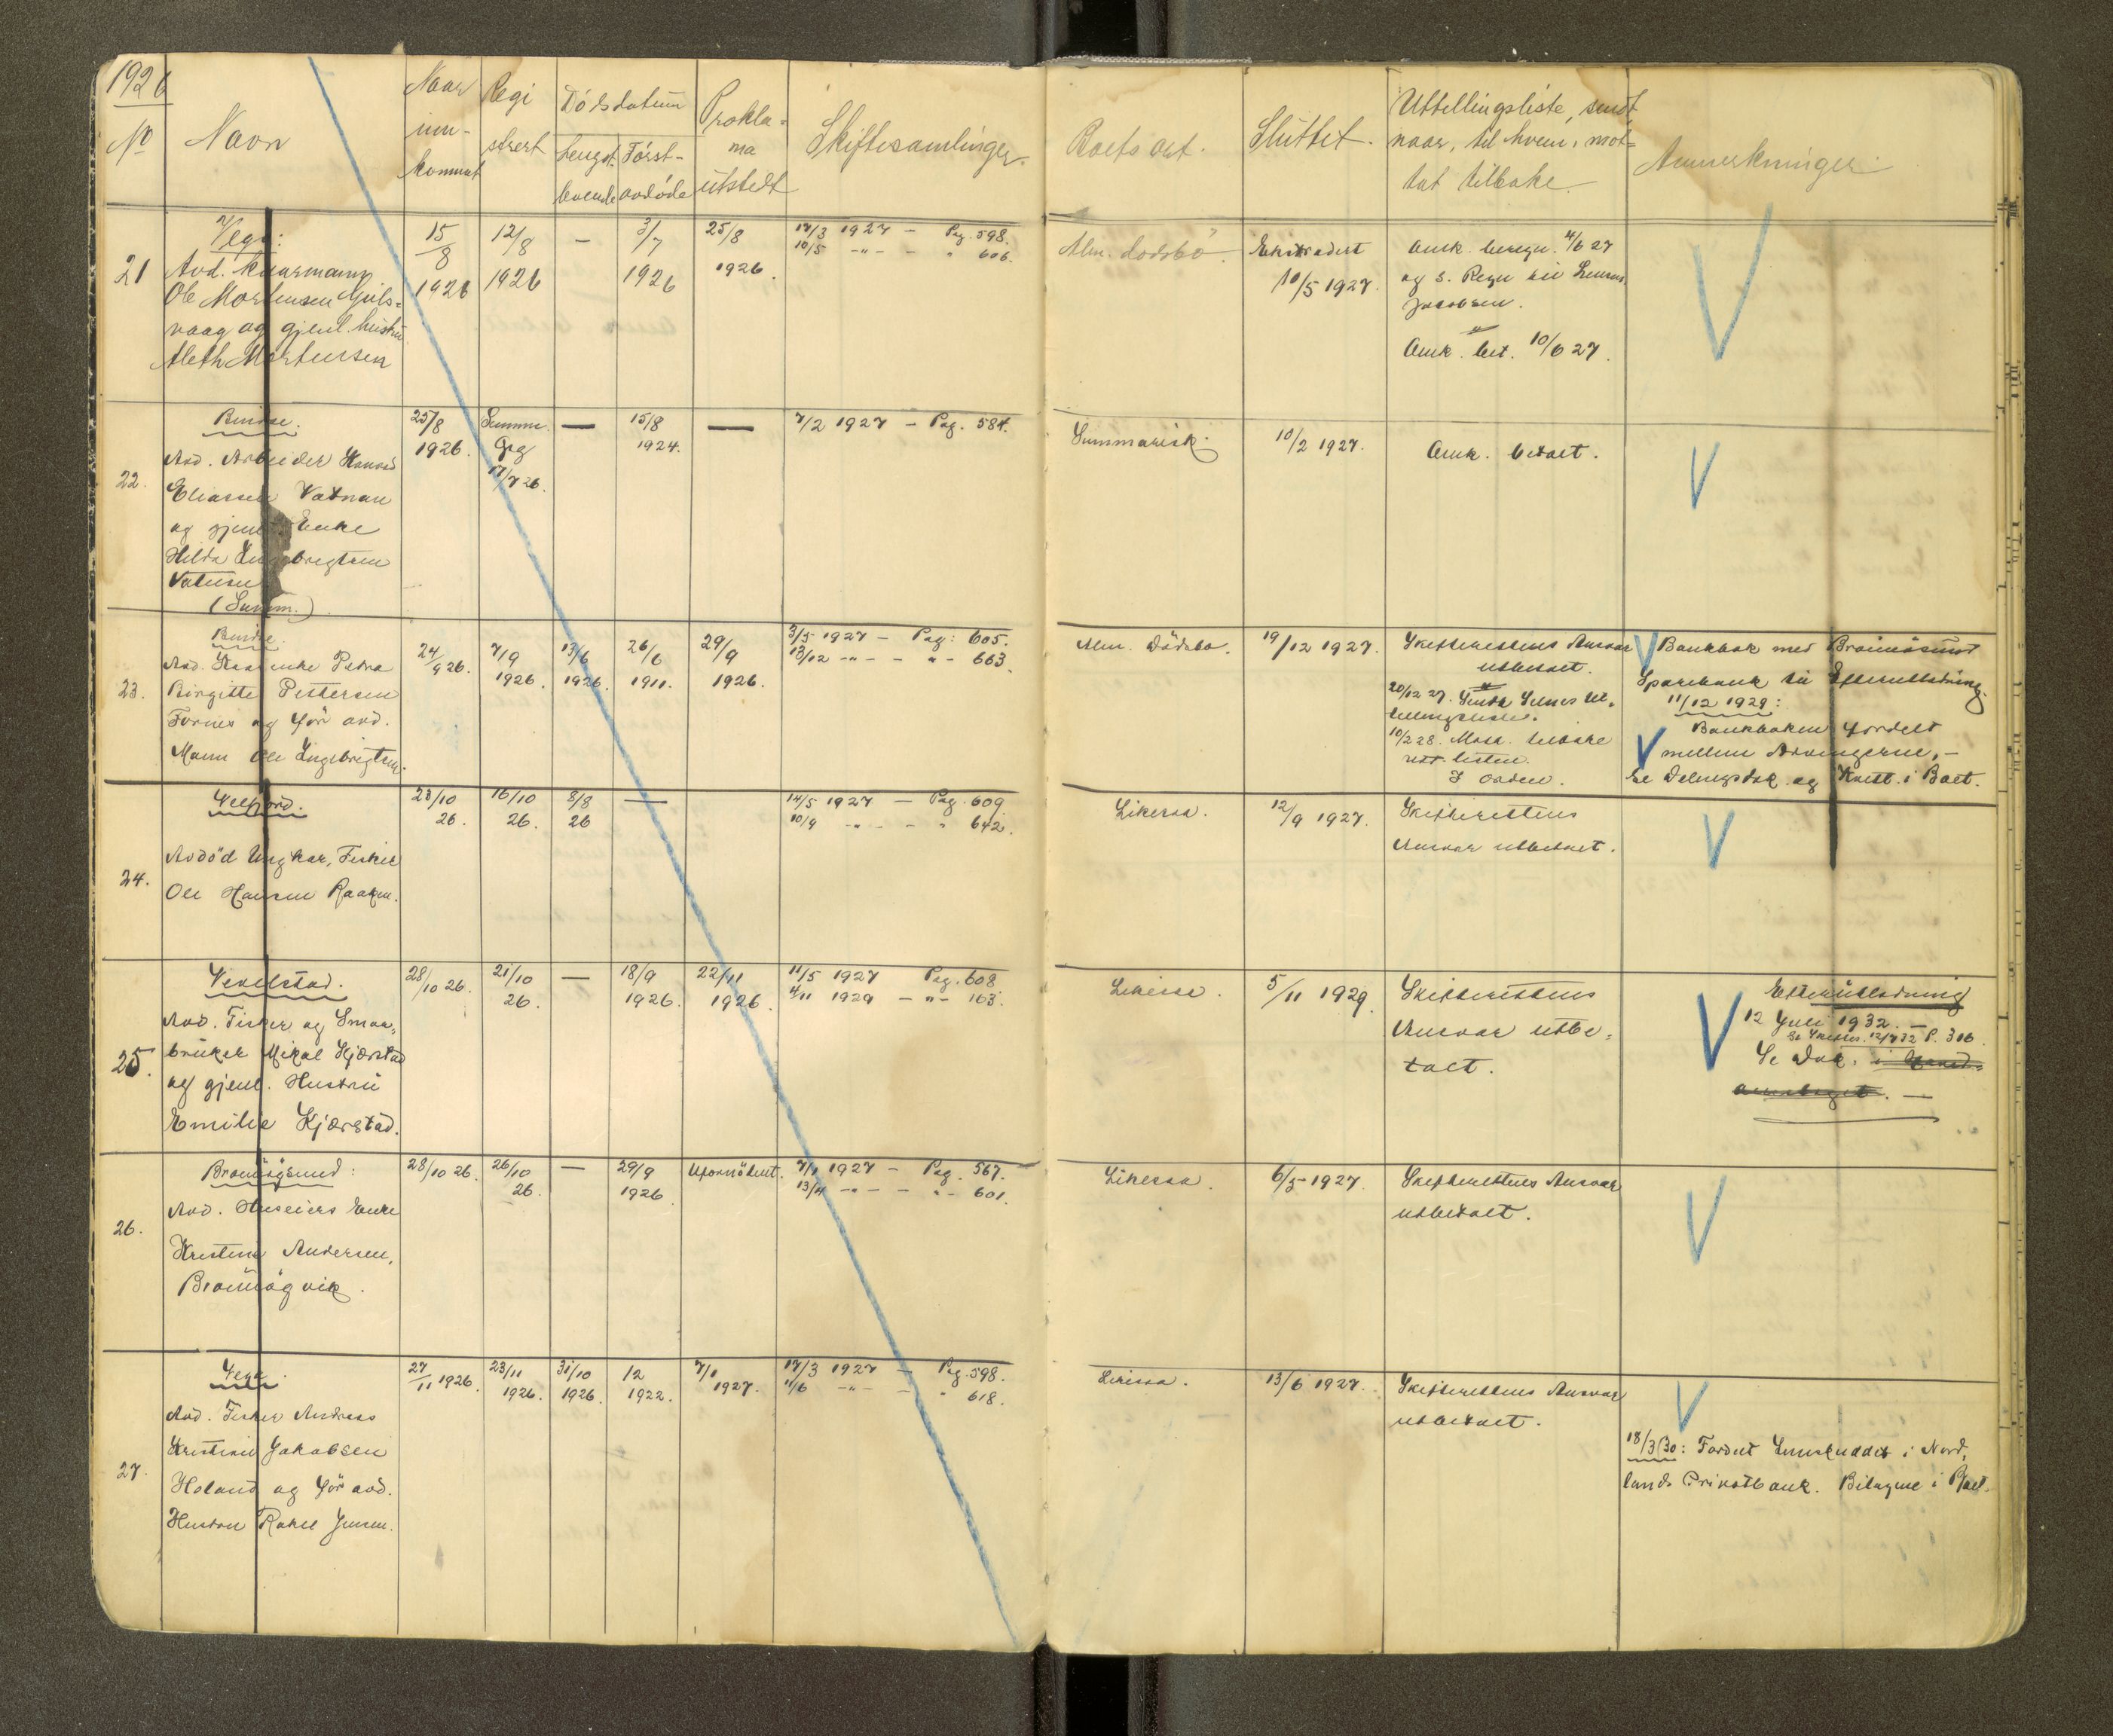 1926
No
Navn
Naar
inn-
kommet
Regi
strert
Dødsdatum
Lengst-
levende
Først-
avdøde
Prokla-
ma
utstedt
Skiftesamlinger.
Boets art.
Sluttet.
Uttellingsliste, sendt,
naar, til hvem, mot-
tat tilbake.
Anmerkninger.
21
Vega:
Avd. kaarmann
Ole Mortensen Guls-
vaag og gjenl. hustru
Aleth Mortensen
15/8
1926
12/8
1926
—
3/7
1926
25/8
1926.
17/3 1927 — Pag. 598.
10/5 -"- - " 606.
Alm. dødsbo.
Ekstradert
10/5 1927.
Auk. beregn. 4/6 27
og s. Regn til Lensm.
Jacobsen.
Auk. bet. 10/6 27.
22.
Bindal.
Avd. Arbeider Konrad
Eliassen Vatnan
og gjenl. Enke
Hilda Ingebrigtsen
Vatnan
(Summ.)
25/8
1926.
Summ.
Grg
17/7 26.
—
15/8
1924.
—
7/2 1927 — Pag. 584.
Summarisk.
10/2 1927.
Auk. betalt.
23.
Bindal.
Avd. Kaarenke Petra
Birgitte Pettersen
Fornes og før avd.
Mann Ole Ingebrigtsen.
24/9 26.
7/9
1926.
13/6
1926.
26/6
1911.
29/9
1926.
3/5 1927 — Pag: 605.
13/12 -"- - "- 663.
Alm. Dødsbo.
19/12 1927.
Skifterettens Ansvar
utbetalt.
20/12 27. Sendt Ut-
tellingsliste.
10/2 28. Mott. tilbake
listen.
I orden.
Bankbok med Brønnøsund
Sparebank til Efterutlodning.
11/12 1929:
Bankboken fordelt
mellem Arvingerne, —
Se Delingsdok. og Kvitt. i Boet.
24.
Velfjord.
Avdød Ungkar, Fisker
Ole Hansen Raaken.
23/10
26.
16/10
26.
8/8
26
—
14/5 1927 — Pag. 609
10/9 -"- - " 642.
Likessa.
12/9 1927.
Skifterettens
Ansvar utbetalt.
25.
Vevelstad.
Avd. Fisker og Smaa-
bruker Mikal Kjærstad
og gjenl. Hustru
Emilie Kjærstad.
28/10 26.
21/10
26.
—
18/9
1926.
22/11
1926.
11/5 1927 Pag. 608
4/11 1929 — "- 163.
Likessa.
5/11 1929.
Skifterettens
Ansvar utbe-
talt.
Efterutlodning
12 Juli 1932. —
Se Skiftes. 12/7 32 P. 306.
Se Dok.
26.
Brønnøysund:
Avd. Huseiers Enke
Kristine Andersen,
Brønnøyvik.
28/10 26.
26/10
26.
—
29/9
1926.
Ufornødent.
7/1 1927 — Pag. 567.
13/4 -"- - "- 601.
Likessa.
6/5 1927.
Skifterettens Ansvar
utbetalt.
27.
Vega.
Avd. Fisker Andreas
Kristian Jakobsen
Holand og før avd.
Hustru Rakel Jensen.
27/11 1926.
23/11
1926.
31/10
1926.
/2
1922.
7/1
1927.
17/3 1927 — Pag. 598.
11/6 -"- - " 618.
Likessa.
13/6 1927.
Skifterettens Ansvar
utbetalt.
18/3 30: Fordelt Innskuddet i Nord-
lands Privatbank. Bilagene i Boet.